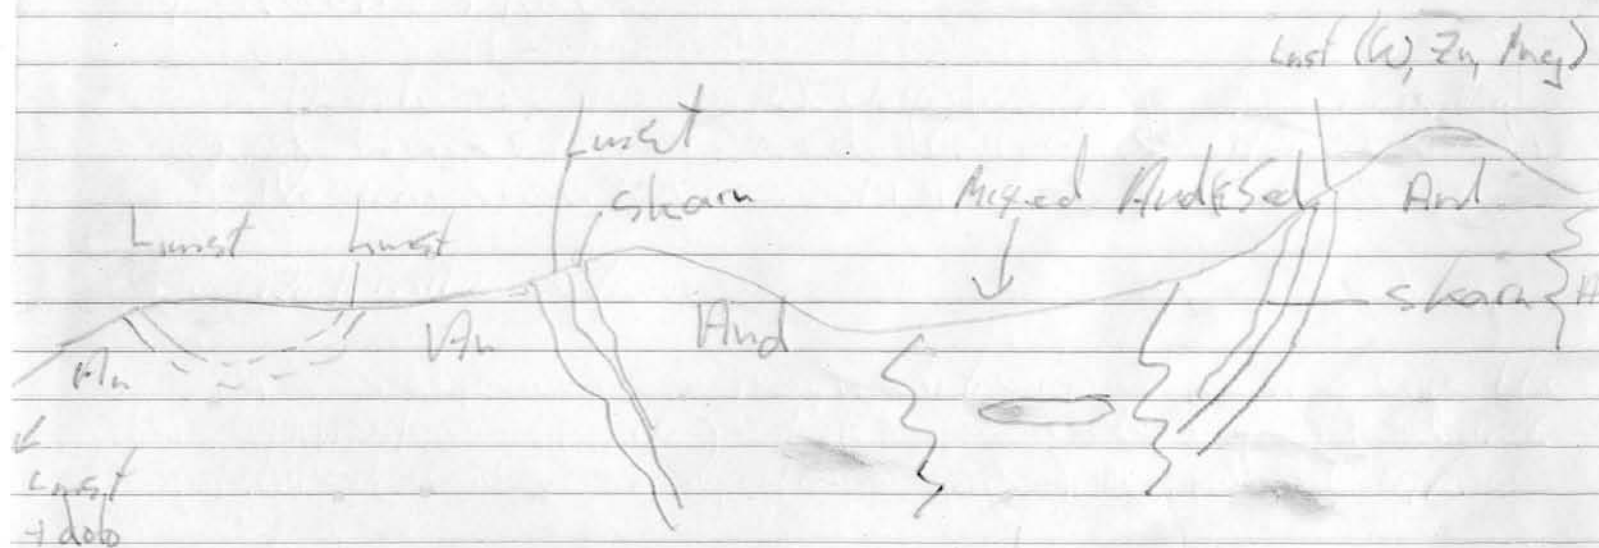 Lmst (W, Zn, Mag)
Lmst
skarn
Mixed And & Sed
And
Lmst
Lmst
skarn
And
An
An
Lmst
+ dolo